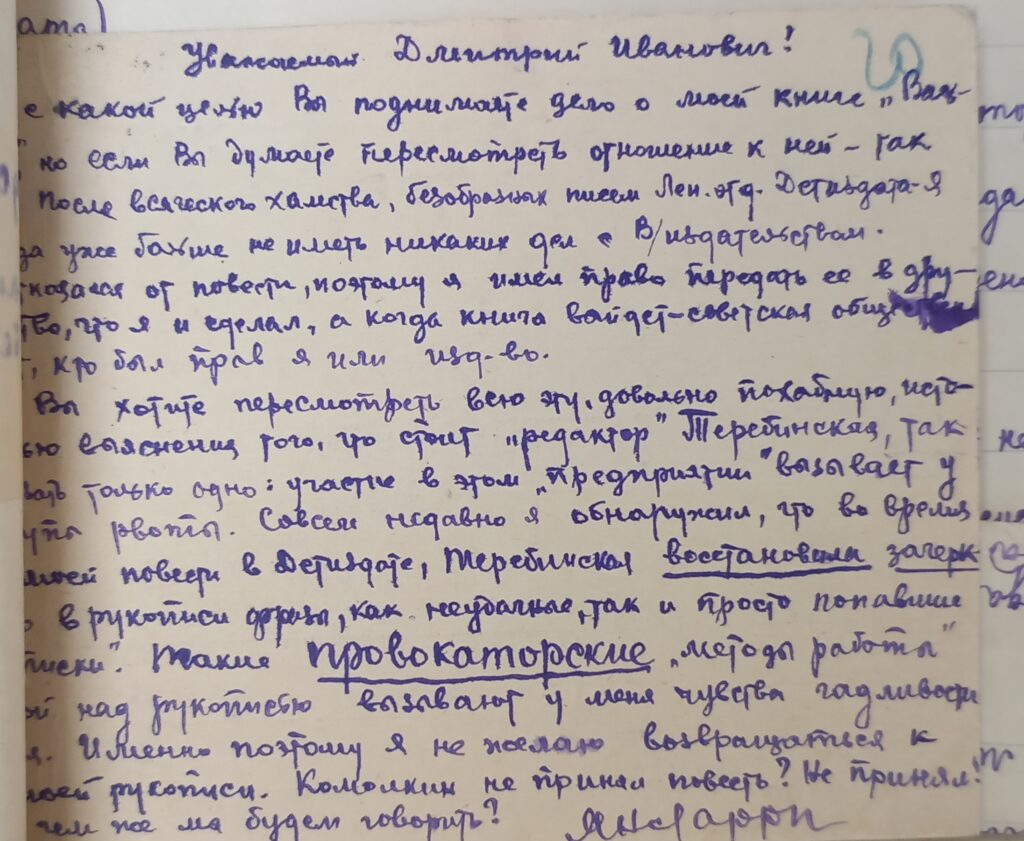 ата)
Уважаемый Дмитрий Иванович!
с какой целью Вы поднимаете дело о моей книге „Вась-
но если Вы думаете пересмотреть отношение к ней – так
После всяческого хамства, безобразных писем Лен. отд. Детиздата – я
за уже больше не иметь никаких дел с В/издательством.
тказался от повести, поэтому я имел право передать ее в дру-
тво, что я и сделал, а когда книга выйдет – советская общес
, кто был прав я или изд-во.
Вы хотите пересмотреть всю эту, довольно похабную, исто-
ью выяснения того, что стоит „редактор" Теребинская, так
вать только одно: участие в этом „предприятии" вызывает у
уты рвоты. Совсем недавно я обнаружил, что во время
моей повести в Детиздате, Теребинская восстановила зачерк-
в рукописи фразы, как неудачные, так и просто попавшие
писки". Такие провокаторские „методы работы"
ой над рукописью вызывают у меня чувства гадливости
я. Именно поэтому я не желаю возвращаться к
моей рукописи. Комолкин не принял повесть? Не принял!
чем же мы будем говорить? Ян Ларри